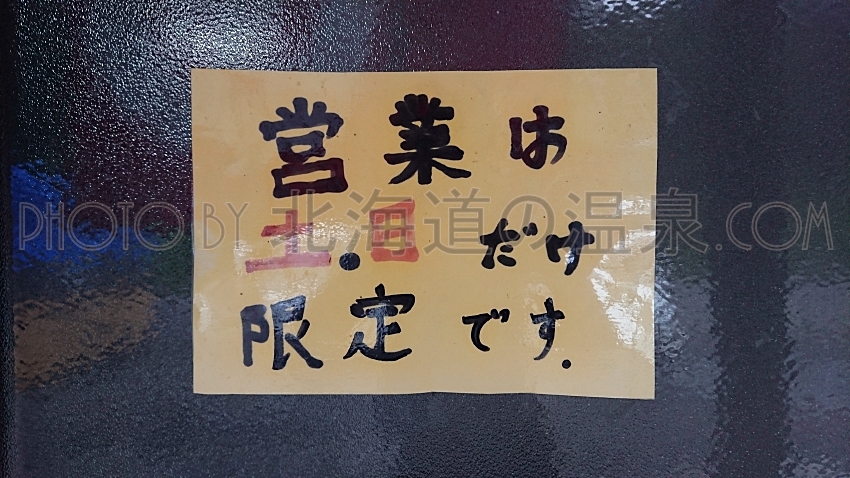 営業は
土.日だけ
限定です.
PHOTO BY 北海道の温泉.COM